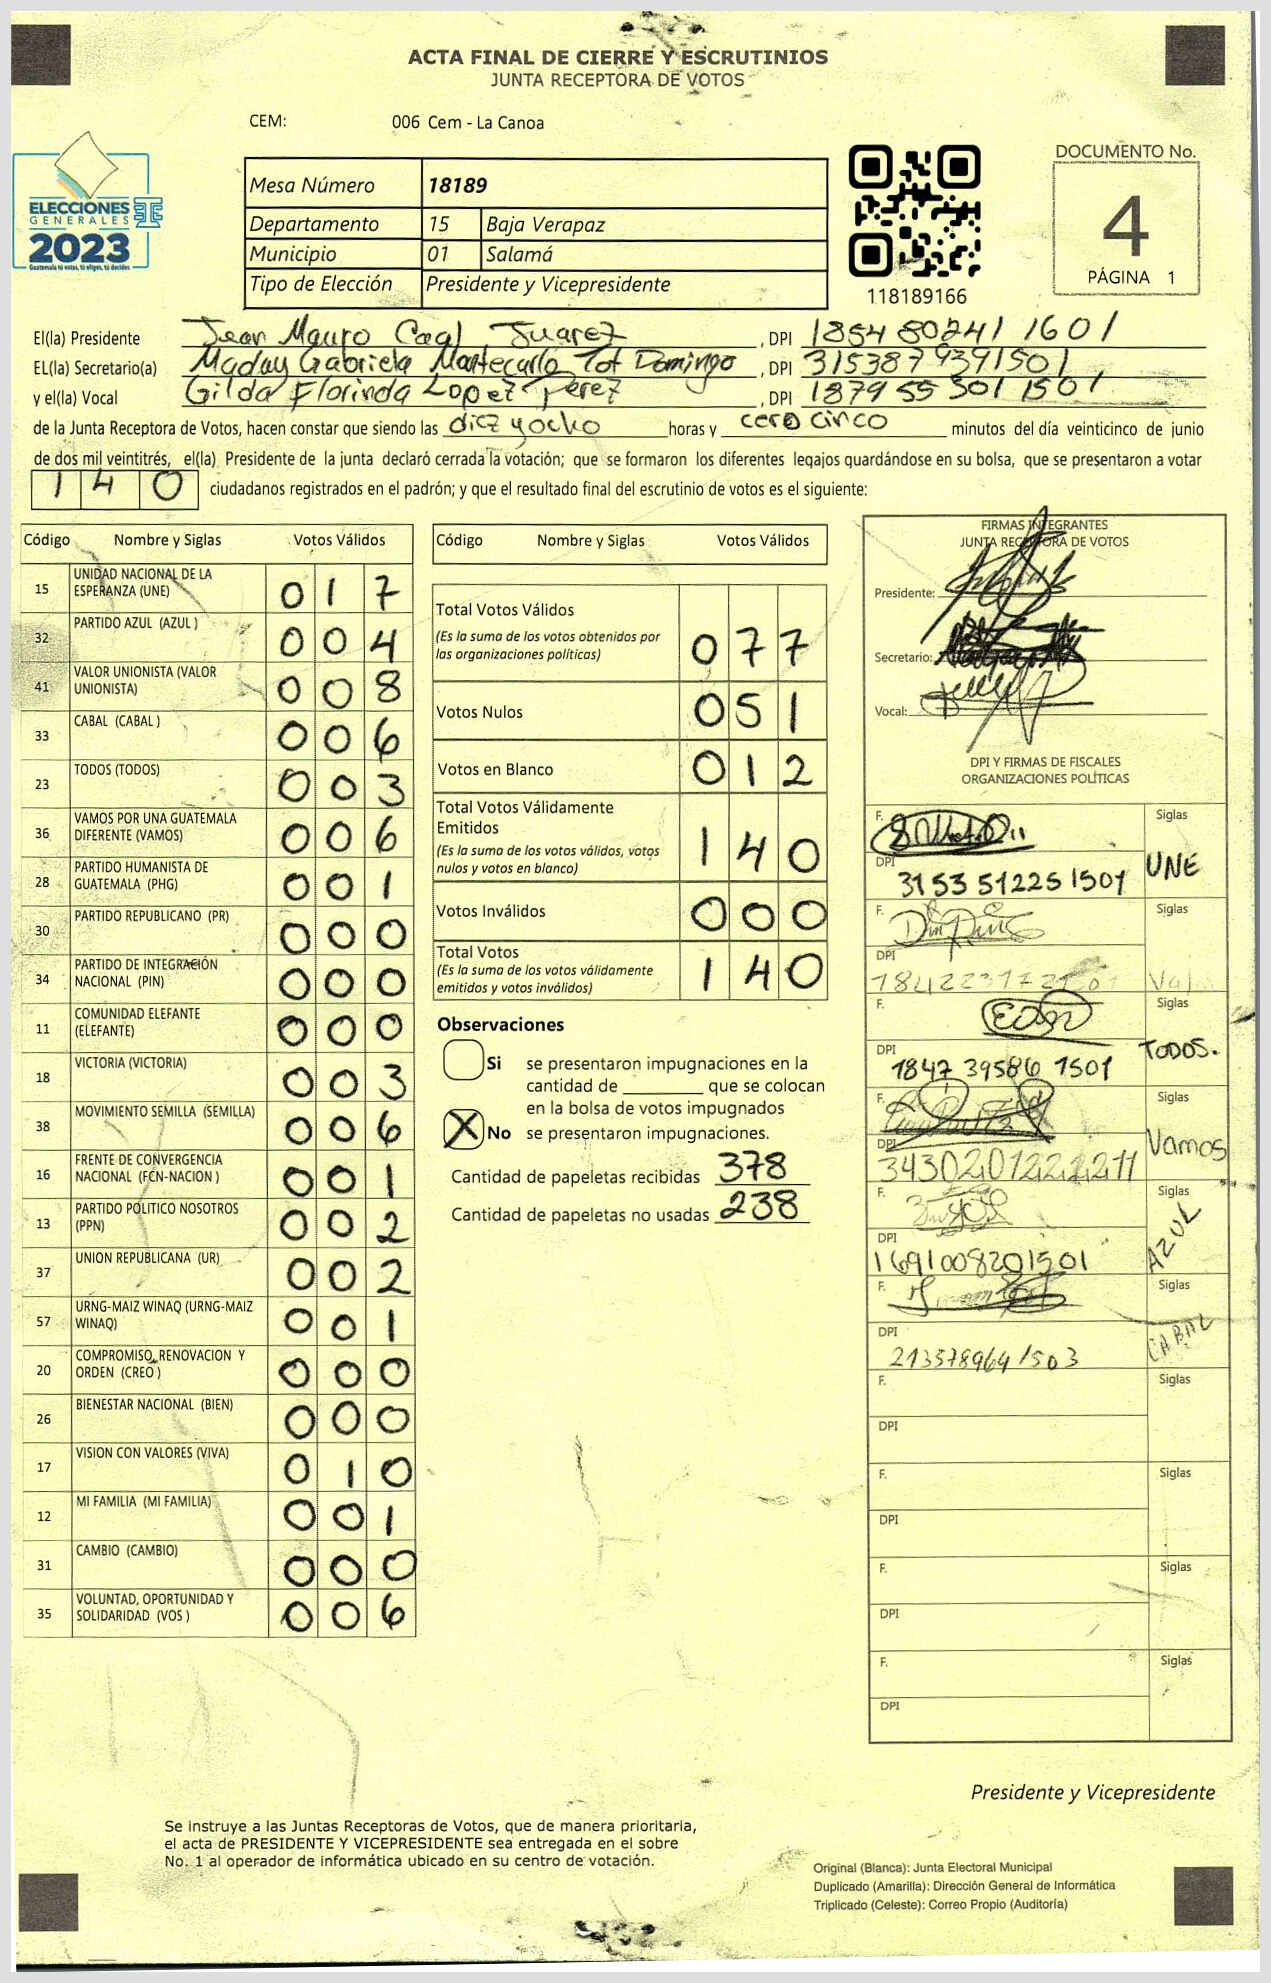 ACTA FINAL DE CIERRE Y ESCRUTINIOS
JUNTA RECEPTORA DE VOTOS
CEM: 006 Cem - La Canoa
ELECCIONES
GENERALES
2023
Guatemala tú votas, tú eliges, tú decides
Mesa Número 18189
Departamento 15 Baja Verapaz
Municipio 01 Salamá
Tipo de Elección Presidente y Vicepresidente
118189166
DOCUMENTO No.
4
PÁGINA 1
El(la) Presidente Jean Mauro Caal Juarez, DPI 1854 80241 1601
EL(la) Secretario(a) Maday Gabriela Tot Domingo, DPI 315387939 1501
y el(la) Vocal Gilda Florinda Lopez Perez, DPI 1879 55 301 1501
de la Junta Receptora de Votos, hacen constar que siendo las diez yocho horas y cero cinco minutos del día veinticinco de junio
de dos mil veintitrés, el(la) Presidente de la junta declaró cerrada la votación; que se formaron los diferentes legajos guardándose en su bolsa, que se presentaron a votar
140 ciudadanos registrados en el padrón; y que el resultado final del escrutinio de votos es el siguiente:
Código Nombre y Siglas Votos Válidos
15 UNIDAD NACIONAL DE LA ESPERANZA (UNE) 017
32 PARTIDO AZUL (AZUL ) 004
41 VALOR UNIONISTA (VALOR UNIONISTA) 008
33 CABAL (CABAL ) 006
23 TODOS (TODOS) 003
36 VAMOS POR UNA GUATEMALA DIFERENTE (VAMOS) 006
28 PARTIDO HUMANISTA DE GUATEMALA (PHG) 001
30 PARTIDO REPUBLICANO (PR) 000
34 PARTIDO DE INTEGRACIÓN NACIONAL (PIN) 000
11 COMUNIDAD ELEFANTE (ELEFANTE) 000
18 VICTORIA (VICTORIA) 003
38 MOVIMIENTO SEMILLA (SEMILLA) 006
16 FRENTE DE CONVERGENCIA NACIONAL (FCN-NACION ) 001
13 PARTIDO POLITICO NOSOTROS (PPN) 002
37 UNION REPUBLICANA (UR) 002
57 URNG-MAIZ WINAQ (URNG-MAIZ WINAQ) 001
20 COMPROMISO, RENOVACION Y ORDEN (CREO ) 000
26 BIENESTAR NACIONAL (BIEN) 000
17 VISION CON VALORES (VIVA) 010
12 MI FAMILIA (MI FAMILIA) 001
31 CAMBIO (CAMBIO) 000
35 VOLUNTAD, OPORTUNIDAD Y SOLIDARIDAD (VOS ) 006
Código Nombre y Siglas Votos Válidos
Total Votos Válidos 077
(Es la suma de los votos obtenidos por
las organizaciones politicas)
Votos Nulos 051
Votos en Blanco 012
Total Votos Válidamente
Emitidos 140
(Es la suma de los votos válidos, votos
nulos y votos en blanco)
Votos Inválidos 000
Total Votos 140
(Es la suma de los votos válidamente
emitidos y votos inválidos)
Observaciones
Si se presentaron impugnaciones en la
cantidad de ________ que se colocan
en la bolsa de votos impugnados
X No se presentaron impugnaciones.
Cantidad de papeletas recibidas 378
Cantidad de papeletas no usadas 238
FIRMAS INTEGRANTES
JUNTA RECEPTORA DE VOTOS
Presidente:
Secretario:
Vocal:
DPI Y FIRMAS DE FISCALES
ORGANIZACIONES POLÍTICAS
F. Siglas
DPI 3153 51225 1501 UNE
F. Siglas
DPI
F. Siglas
DPI 1847 39586 1501 TODOS.
F. Siglas
DPI Vamos
F. Siglas
DPI 1691008201501 AZUL
F. Siglas
DPI 213578964 1503 CABAL
F. Siglas
DPI
F. Siglas
DPI
F. Siglas
DPI
F. Siglas
DPI
Presidente y Vicepresidente
Se instruye a las Juntas Receptoras de Votos, que de manera prioritaria,
el acta de PRESIDENTE Y VICEPRESIDENTE sea entregada en el sobre
No. 1 al operador de informática ubicado en su centro de votación.
Original (Blanca): Junta Electoral Municipal
Duplicado (Amarilla): Dirección General de Informática
Triplicado (Celeste): Correo Propio (Auditoría)